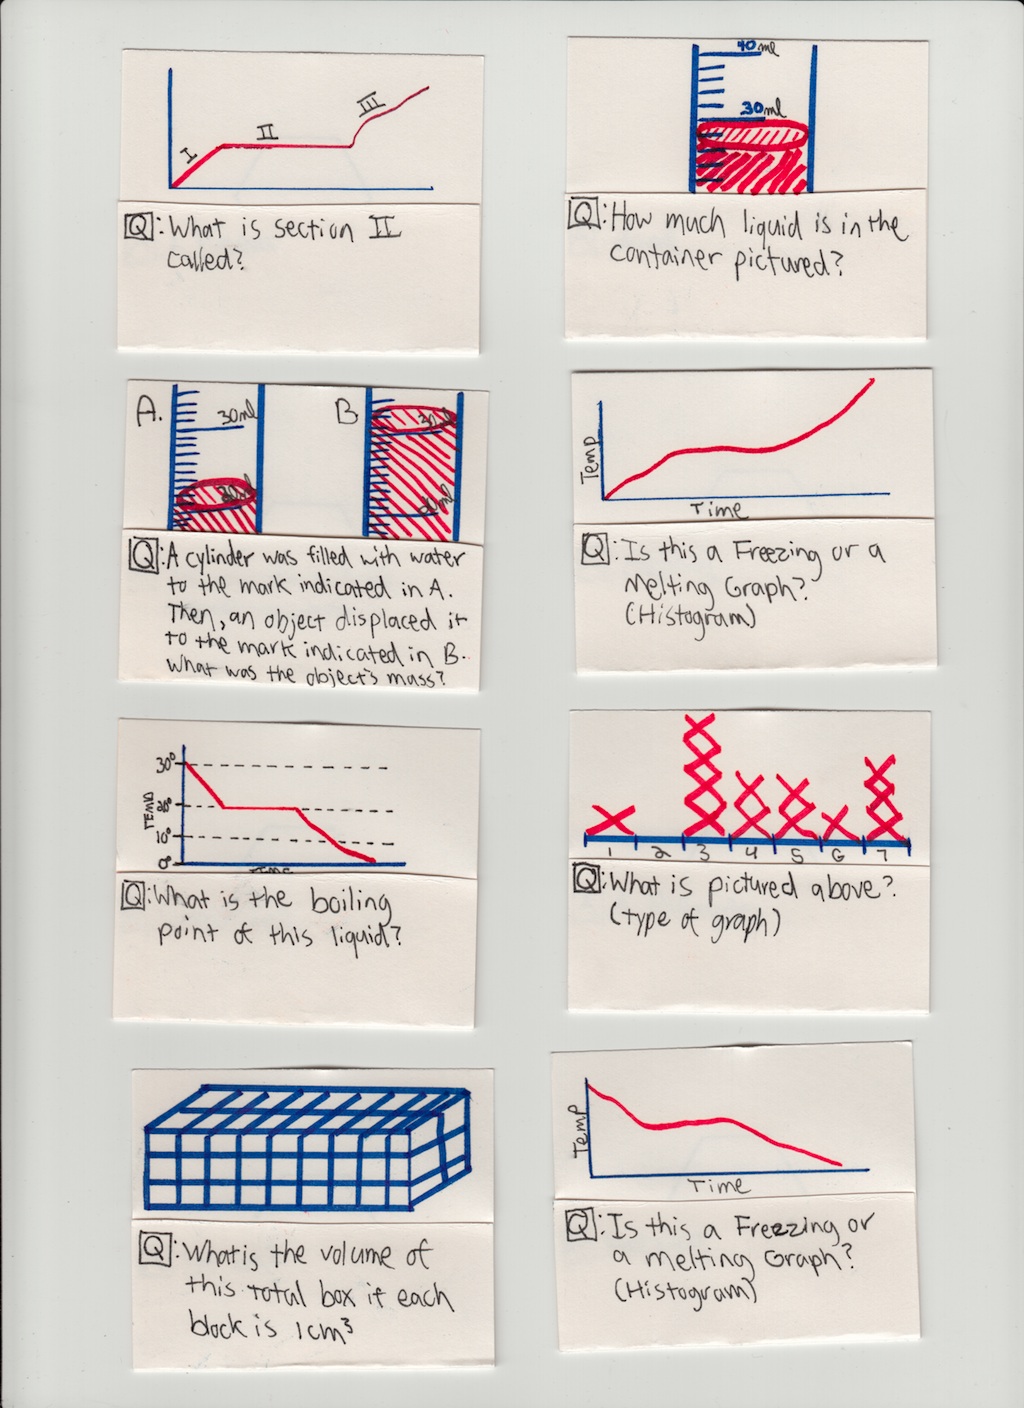 I
II
III
Q: What is section II
called?
40ml
30ml
Q: How much liquid is in the
container pictured?
A.
30ml
20ml
B
30ml
20ml
Q: A cylinder was filled with water
to the mark indicated in A.
Then, an object displaced it
to the mark indicated in B.
What was the object's mass?
Temp
Time
Q: Is this a Freezing or a
Melting Graph?
(Histogram)
30°
20°
10°
0°
TEMP
Time
Q: What is the boiling
point of this liquid?
1 2 3 4 5 6 7
Q: What is pictured above?
(type of graph)
Q: What is the volume of
this total box if each
block is 1cm³
Temp
Time
Q: Is this a Freezing or
a melting Graph?
(Histogram)